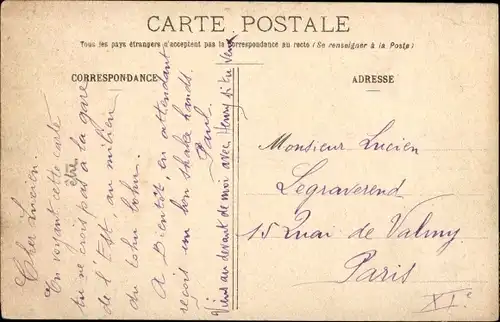 CARTE POSTALE
Tous les pays étrangers n'acceptent pas la correspondance au recto (Se renseigner à la Poste)
CORRESPONDANCE
Cher Lucien.
En voyant cette carte
tu te crois pas à la gare
être
de l'Est, au milieu
du tohu bohu.
A Bientôt, en attendant
reçois un bon shake hands.
Paul.
Viens au devant de moi avec Henry si tu veux
ADRESSE
Monsieur Lucien
Legraverend
15 Quai de Valmy
Paris
XIe